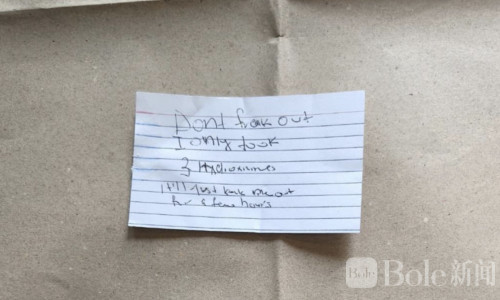 Dont freak out
I only took
3 Hydroxizines
it'll just knock me out
for a few hours
Bole新闻